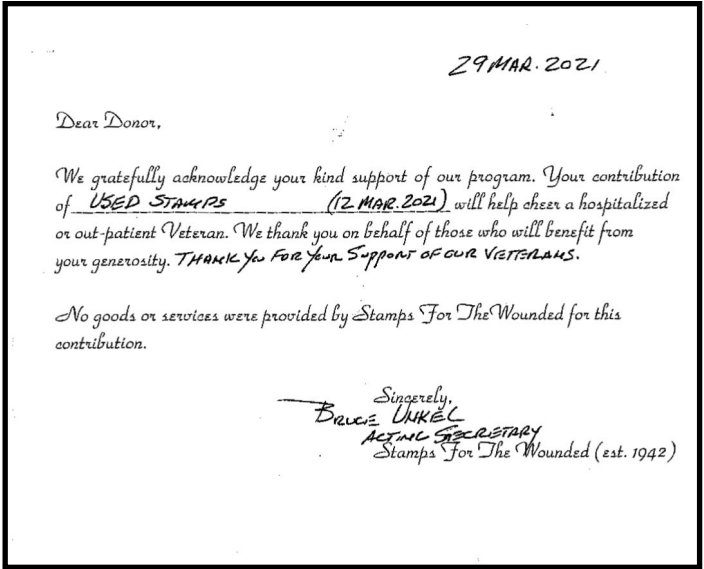 29 MAR. 2021
Dear Donor,
We gratefully acknowledge your kind support of our program. Your contribution
of USED STAMPS (12 MAR. 2021) will help cheer a hospitalized
or out-patient Veteran. We thank you on behalf of those who will benefit from
your generosity. THANK YOU FOR YOUR SUPPORT OF OUR VETTERANS.
No goods or services were provided by Stamps For The Wounded for this
contribution.
Sincerely,
BRUCE UNKEL
ACTING SECRETARY
Stamps For The Wounded (est. 1942)